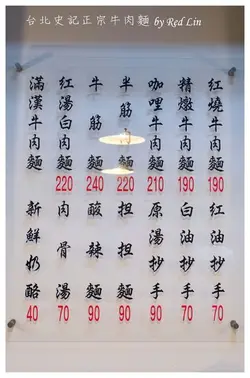 台北史記正宗牛肉麵 by Red Lin
紅燒牛肉麵
190
精燉牛肉麵
190
咖哩牛肉麵
210
半筋麵
220
牛筋麵
240
紅湯白肉麵
220
滿漢牛肉麵
紅油抄手
70
白油抄手
70
原湯抄手
90
担担麵
90
酸辣麵
90
肉骨湯
70
新鮮奶酪
40